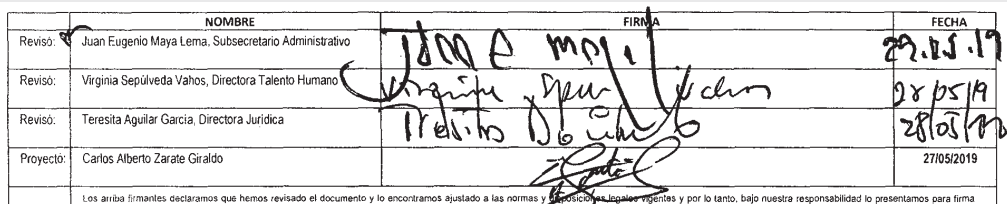 NOMBRE FIRMA FECHA
Revisó: Juan Eugenio Maya Lema, Subsecretario Administrativo 29.05.19
Revisó: Virginia Sepúlveda Vahos, Directora Talento Humano 28/05/19
Revisó: Teresita Aguilar Garcia, Directora Jurídica 28/05/
Proyectó: Carlos Alberto Zarate Giraldo 27/05/2019
Los arriba firmantes declaramos que hemos revisado el documento y lo encontramos ajustado a las normas y disposiciones legales vigentes y por lo tanto, bajo nuestra responsabilidad lo presentamos para firma